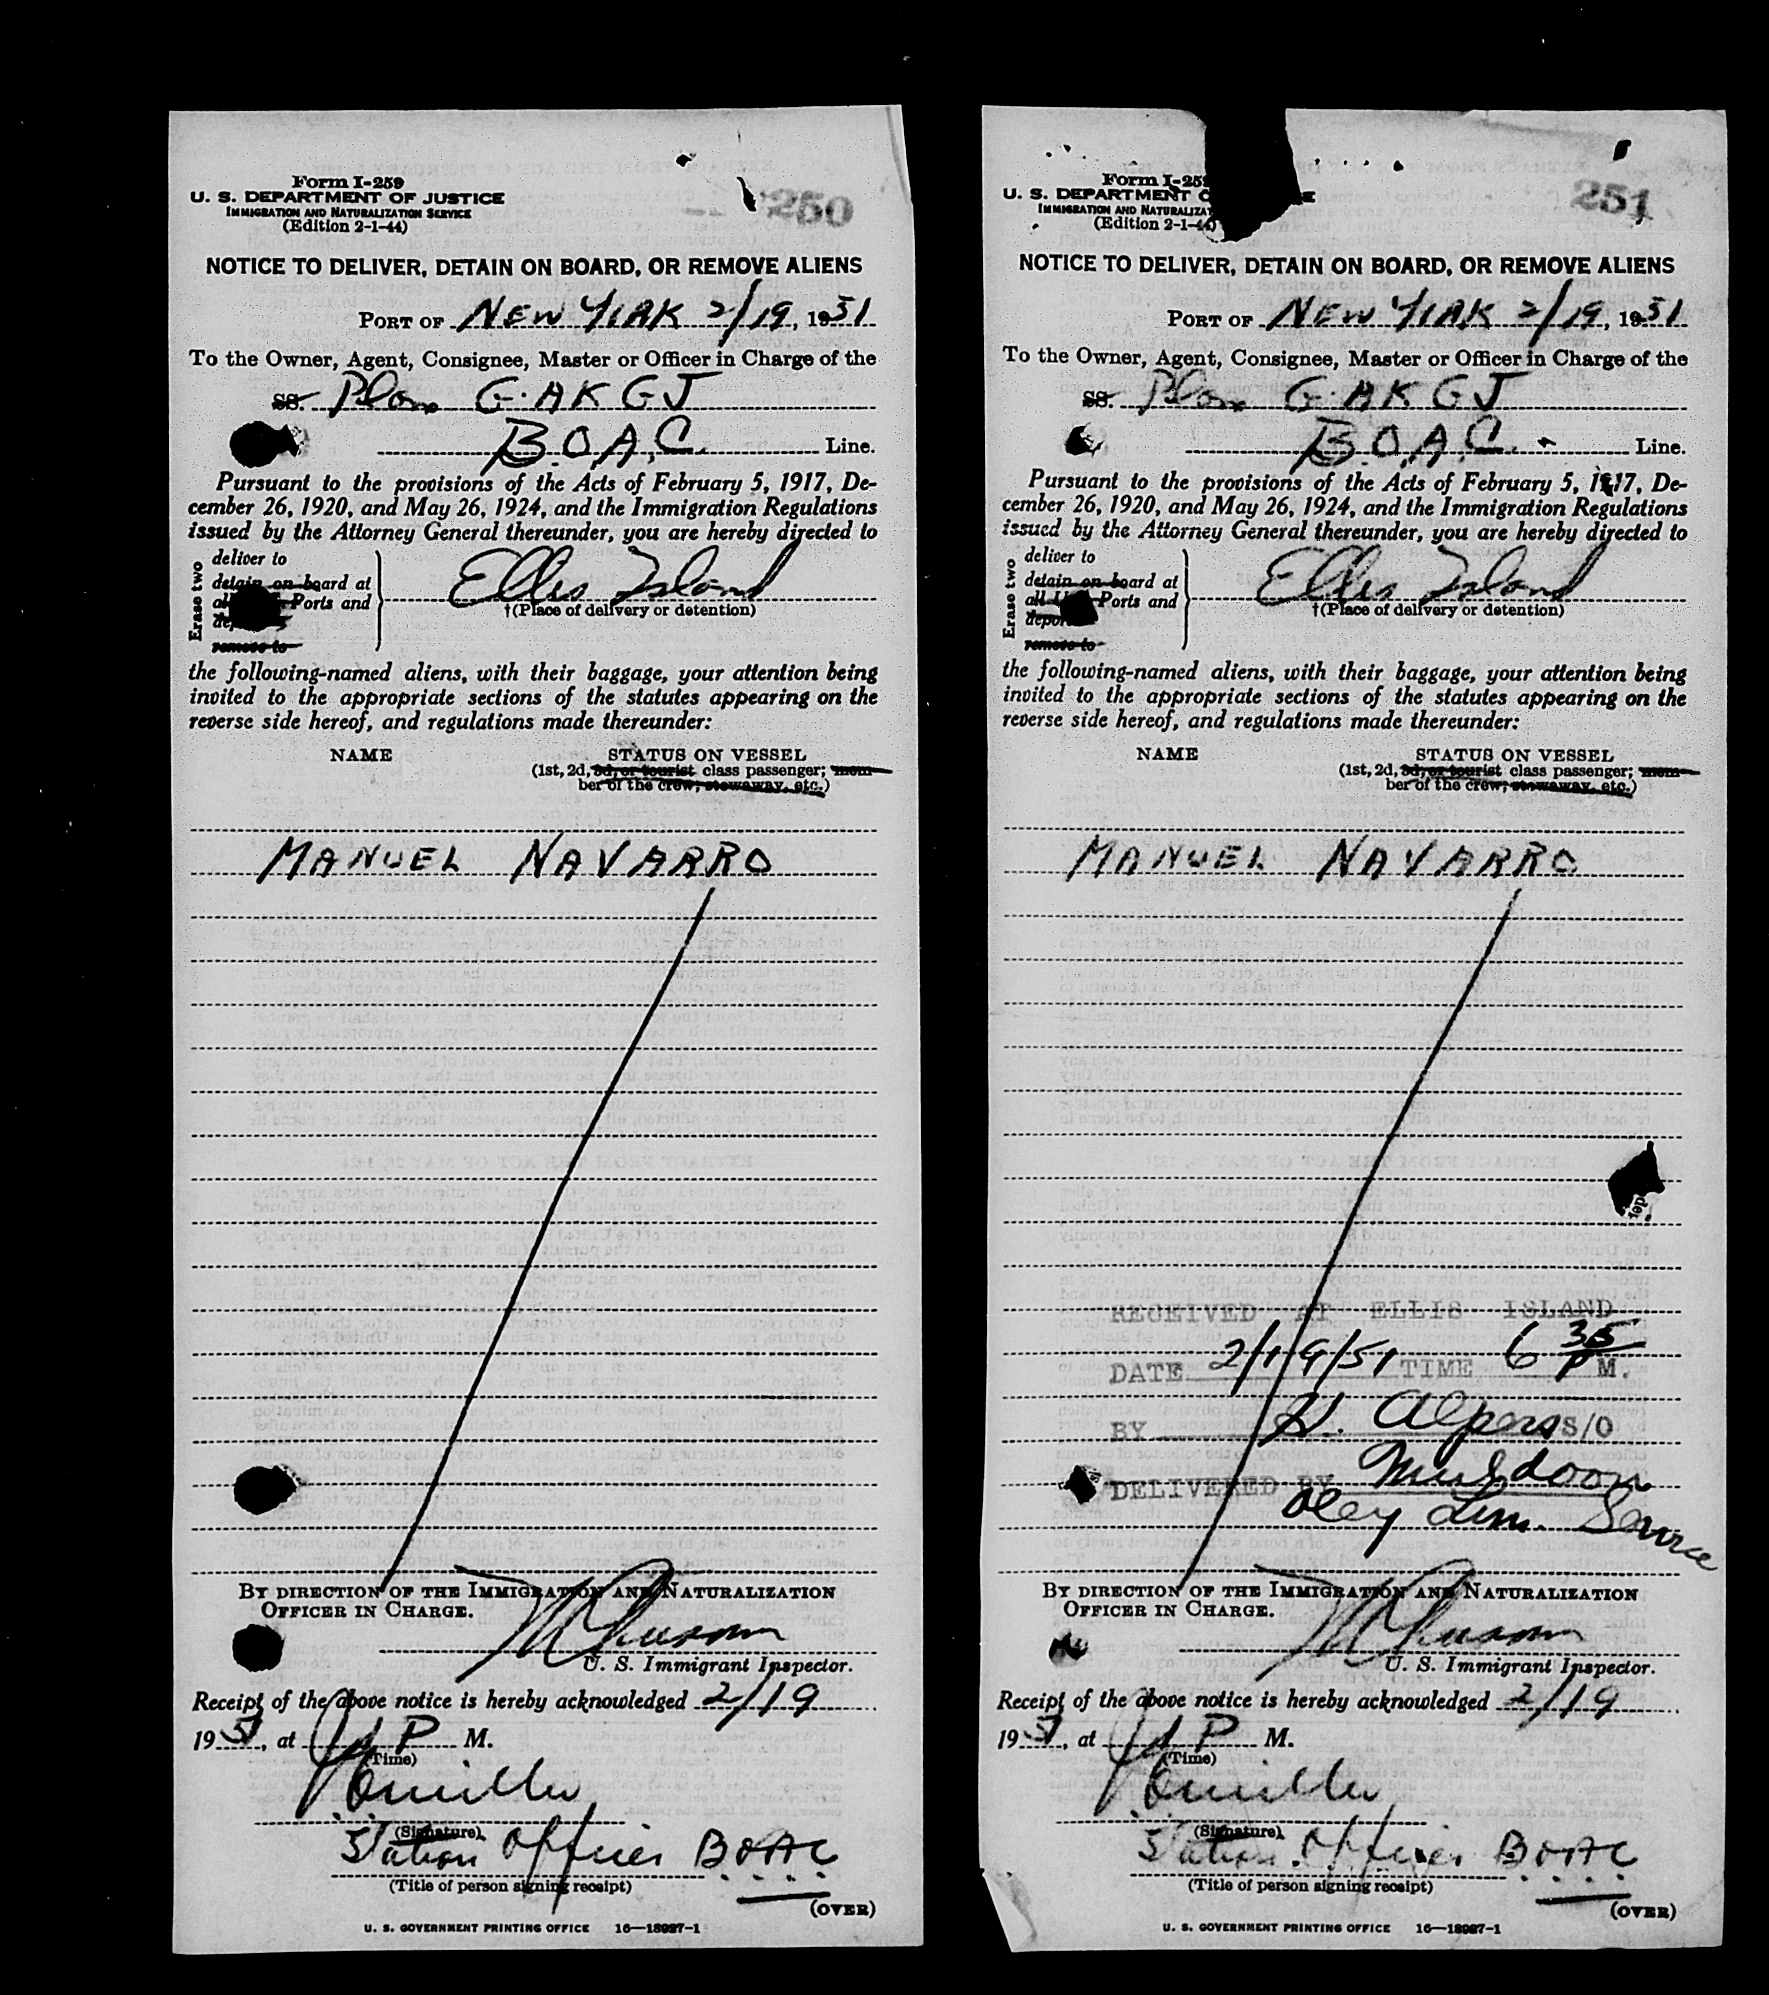 Form I-259
U. S. DEPARTMENT OF JUSTICE
IMMIGRATION AND NATURALIZATION SERVICE
(Edition 2-1-44)
250
NOTICE TO DELIVER, DETAIN ON BOARD, OR REMOVE ALIENS
PORT OF NEW YORK 2/19, 1951
To the Owner, Agent, Consignee, Master or Officer in Charge of the
SS. Plane G.AKGJ
B.O.A.C. Line.
Pursuant to the provisions of the Acts of February 5, 1917, De-
cember 26, 1920, and May 26, 1924, and the Immigration Regulations
issued by the Attorney General thereunder, you are hereby directed to
Erase two
deliver to
detain on board at
Ports and
remove to
Ellis Island
†(Place of delivery or detention)
the following-named aliens, with their baggage, your attention being
invited to the appropriate sections of the statutes appearing on the
reverse side hereof, and regulations made thereunder:
NAME STATUS ON VESSEL
(1st, 2d, 3d, or tourist class passenger; mem-
ber of the crew, stowaway, etc.)
MANUEL NAVARRO
BY DIRECTION OF THE IMMIGRATION AND NATURALIZATION
OFFICER IN CHARGE.
U. S. Immigrant Inspector.
Receipt of the above notice is hereby acknowledged 2/19
1951, at P M.
(Time)
(Signature)
Station Officer BOAC
(Title of person signing receipt)
(OVER)
U. S. GOVERNMENT PRINTING OFFICE 16—18987-1
Form I-259
U. S. DEPARTMENT
IMMIGRATION AND
(Edition 2-1-44)
251
NOTICE TO DELIVER, DETAIN ON BOARD, OR REMOVE ALIENS
PORT OF NEW YORK 2/19, 1951
To the Owner, Agent, Consignee, Master or Officer in Charge of the
SS. Plane G.AKGJ
B.O.A.C. Line.
Pursuant to the provisions of the Acts of February 5, 1917, De-
cember 26, 1920, and May 26, 1924, and the Immigration Regulations
issued by the Attorney General thereunder, you are hereby directed to
Erase two
deliver to
detain on board at
all Ports and
remove to
Ellis Island
†(Place of delivery or detention)
the following-named aliens, with their baggage, your attention being
invited to the appropriate sections of the statutes appearing on the
reverse side hereof, and regulations made thereunder:
NAME STATUS ON VESSEL
(1st, 2d, 3d, or tourist class passenger; mem-
ber of the crew, stowaway, etc.)
MANUEL NAVARRO
RECEIVED AT ELLIS ISLAND
DATE 2/19/51 TIME 6 35 P M.
BY H. Alpers S/O
DELIVERED BY Muldoon
Oley Lim. Service
BY DIRECTION OF THE IMMIGRATION AND NATURALIZATION
OFFICER IN CHARGE.
U. S. Immigrant Inspector.
Receipt of the above notice is hereby acknowledged 2/19
1951, at P M.
(Time)
(Signature)
Station Officer BOAC
(Title of person signing receipt)
(OVER)
U. S. GOVERNMENT PRINTING OFFICE 16—18987-1